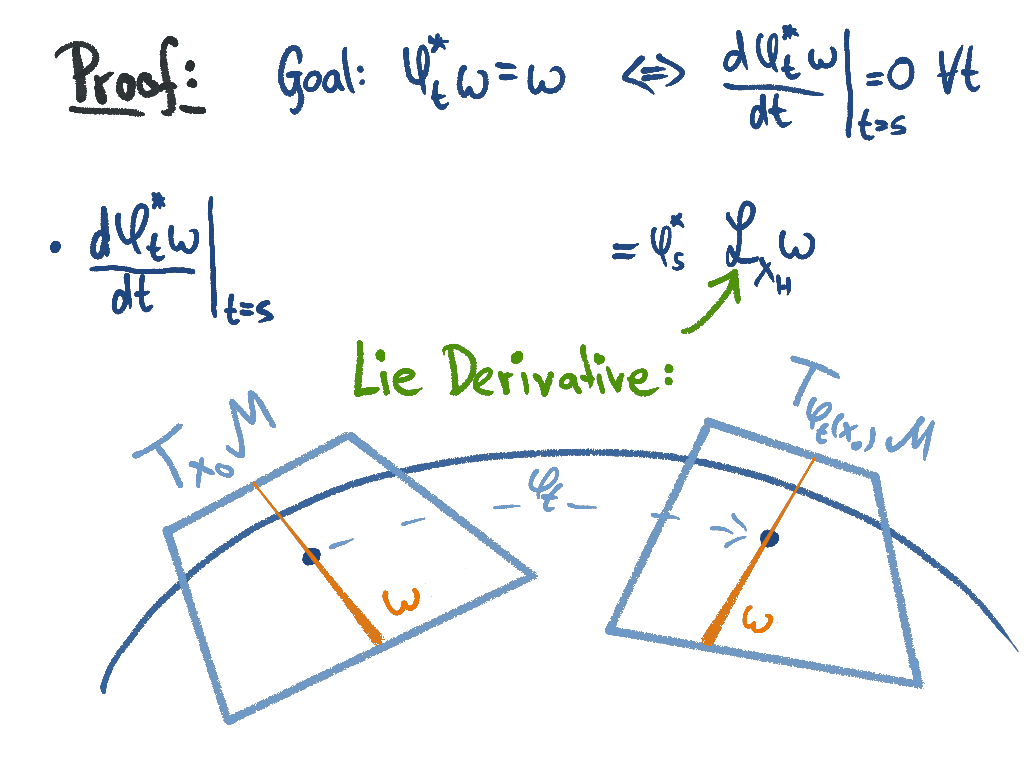 Proof: Goal: φ_t^* ω = ω ⇔ dφ_t^* ω / dt |_{t=s} = 0 ∀t
• dφ_t^* ω / dt |_{t=s} = φ_s^* ℒ_{X_H} ω
Lie Derivative:
T_{x_0} M T_{φ_t(x_0)} M
φ_t
ω ω